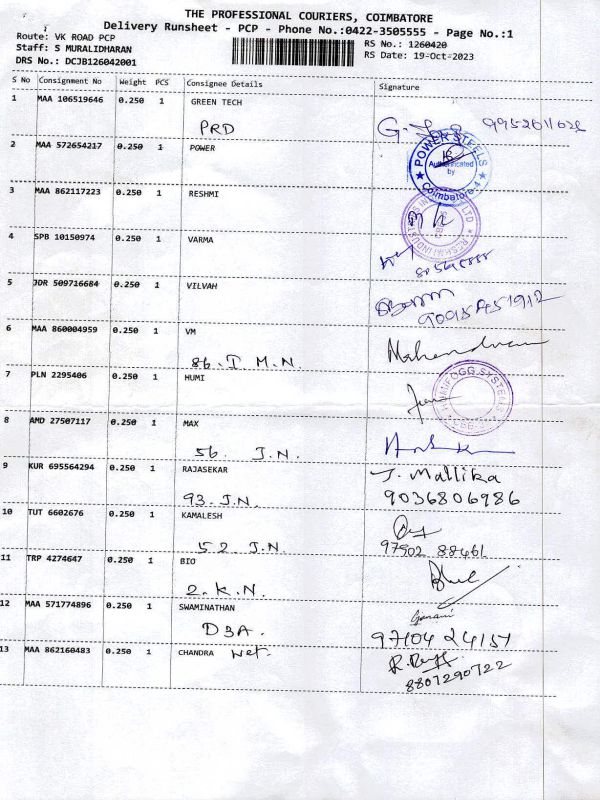 THE PROFESSIONAL COURIERS, COIMBATORE
Delivery Runsheet - PCP - Phone No.:0422-3505555 - Page No.:1
Route: VK ROAD PCP
Staff: S MURALIDHARAN
DRS No.: DCJB126042001
RS No.: 1260420
RS Date: 19-Oct-2023
S No Consignment No Weight PCS Consignee Details Signature
1 MAA 106519646 0.250 1 GREEN TECH
PRD
2 MAA 572654217 0.250 1 POWER
POWER STEELS
Authenticated
by
Coimbatore-4
3 MAA 862117223 0.250 1 RESHMI
RESHMI INDUSTRIES
4 SPB 10150974 0.250 1 VARMA
5 JDR 509716684 0.250 1 VILVAH
6 MAA 860004959 0.250 1 VM
86. I M.N.
7 PLN 2295406 0.250 1 HUMI
8 AMD 27507117 0.250 1 MAX
56. J.N.
9 KUR 695564294 0.250 1 RAJASEKAR
93. J.N. J. Mallika
9036806986
10 TUT 6602676 0.250 1 KAMALESH
52 J.N. 97902 88461
11 TRP 4274647 0.250 1 BIO
2. K.N.
12 MAA 571774896 0.250 1 SWAMINATHAN
D3A. 97104 24151
13 MAA 862160483 0.250 1 CHANDRA Net.
8807290722